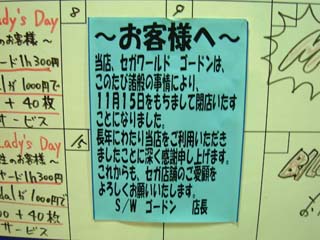 ～お客様へ～
当店、セガワールド ゴードンは、
このたび諸般の事情により、
11月15日をもちまして閉店いたす
ことになりました。
長年にわたり当店をご利用いただき
ましたことに深く感謝申し上げます。
これからも、セガ店舗のご愛顧を
よろしくお願いいたします。
S/W ゴードン 店長
ady's Day
のお客様
ード1h300円
1000円で
+ 40枚
サービス
8
9
Lady's Day
性のお客様
ード1h300円
dalが1000円で
00 + 40枚
サービス